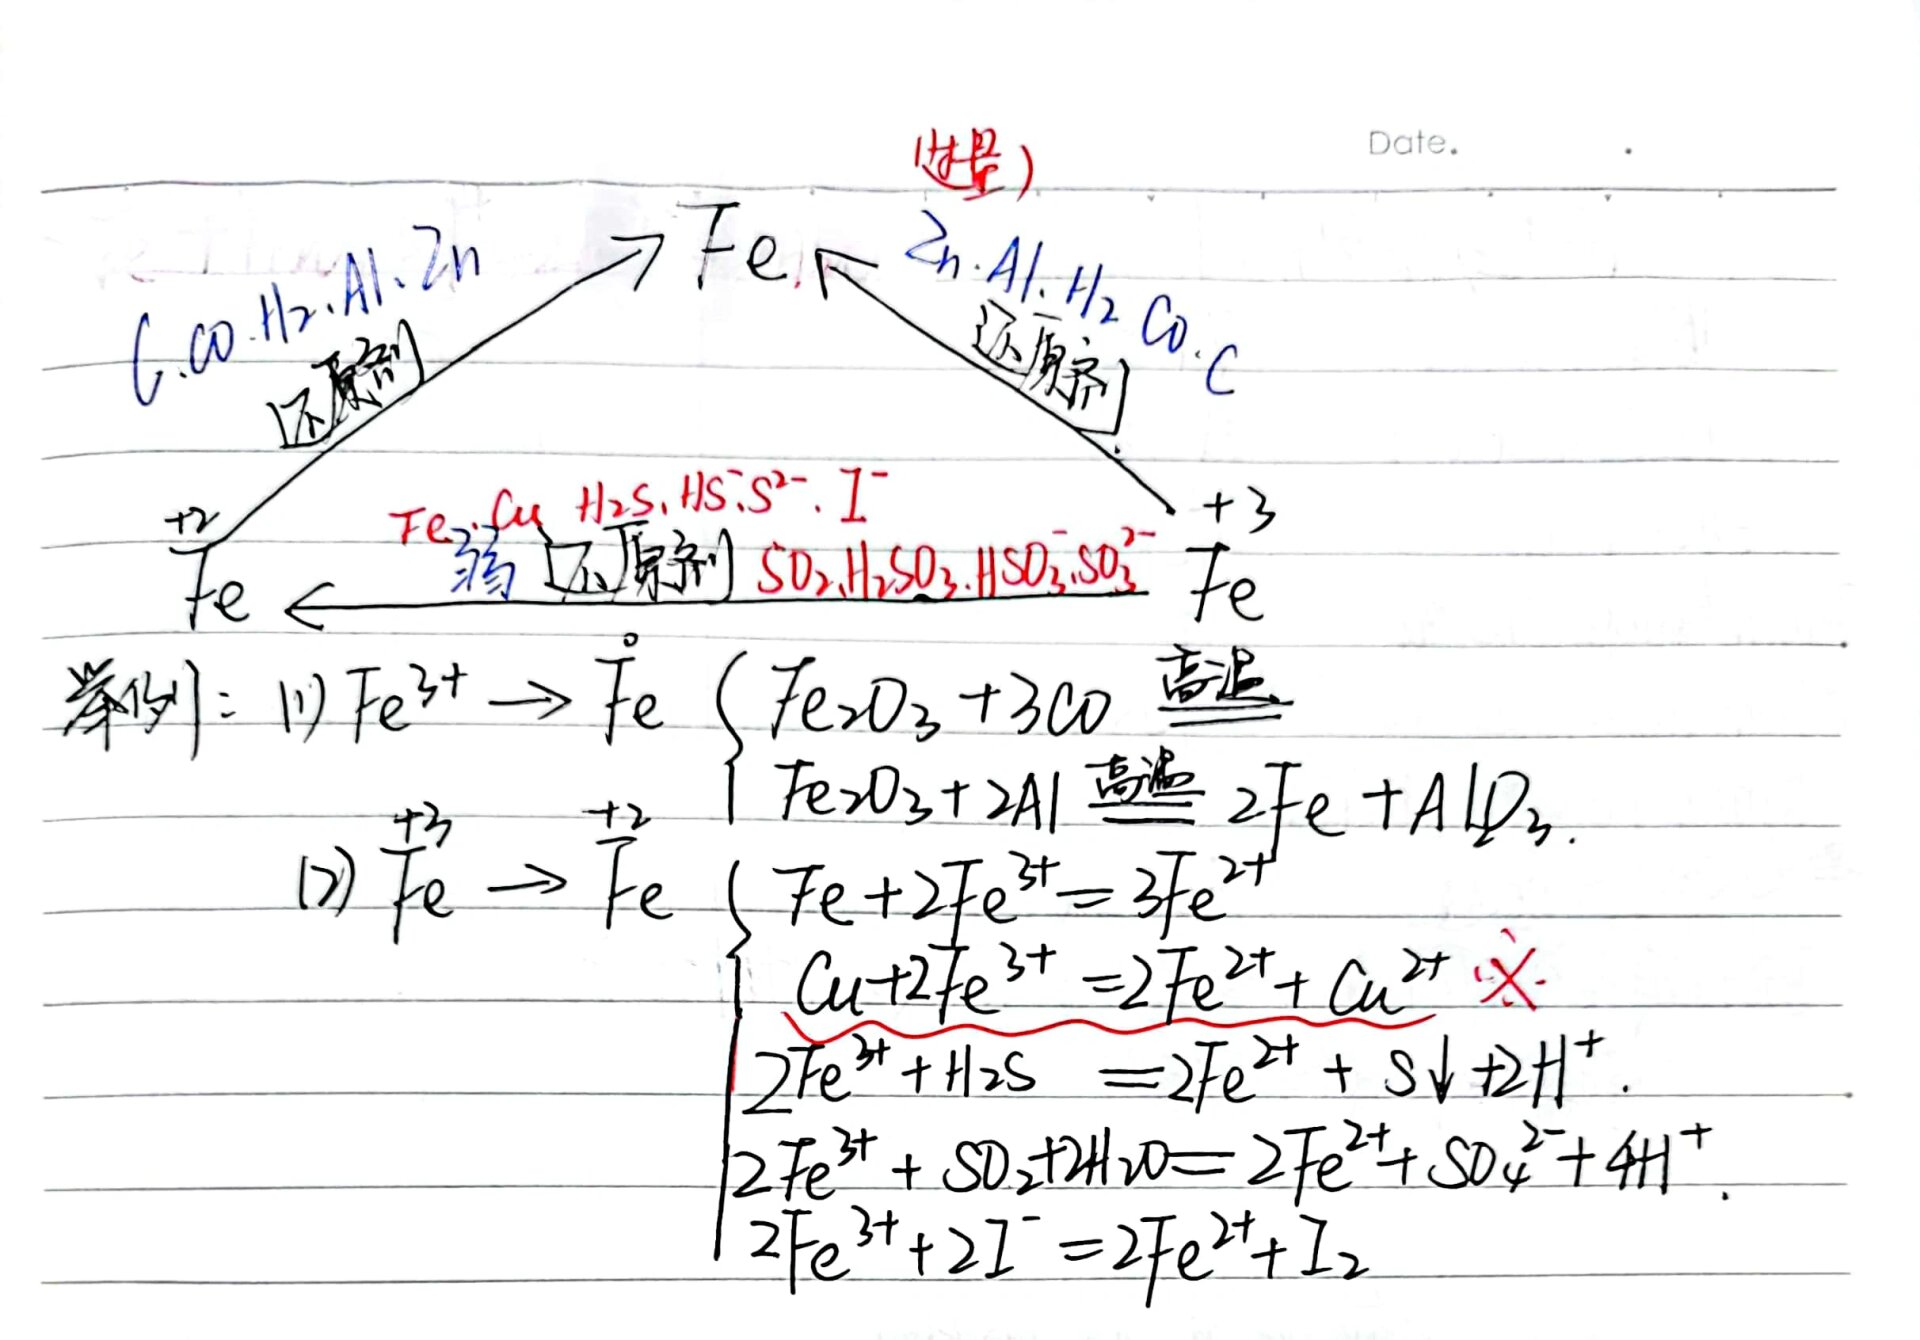 Date.
(过量)
Fe
C.CO.H₂.Al.Zn
还原剂
Zn.Al.H₂ CO.C
还原剂
+2
Fe
Fe.Cu H₂S.HS⁻.S²⁻.I⁻
弱 还原剂 SO₂.H₂SO₃.HSO₃⁻.SO₃²⁻
+3
Fe
举例: (1) Fe³⁺ → Fe⁰ { Fe₂O₃+3CO 高温
Fe₂O₃+2Al 高温 2Fe+Al₂O₃.
(2) +3 Fe → +2 Fe { Fe+2Fe³⁺=3Fe²⁺
Cu+2Fe³⁺=2Fe²⁺+Cu²⁺ ※
2Fe³⁺+H₂S =2Fe²⁺+S↓+2H⁺.
2Fe³⁺+SO₂+2H₂O=2Fe²⁺+SO₄²⁻+4H⁺.
2Fe³⁺+2I⁻=2Fe²⁺+I₂